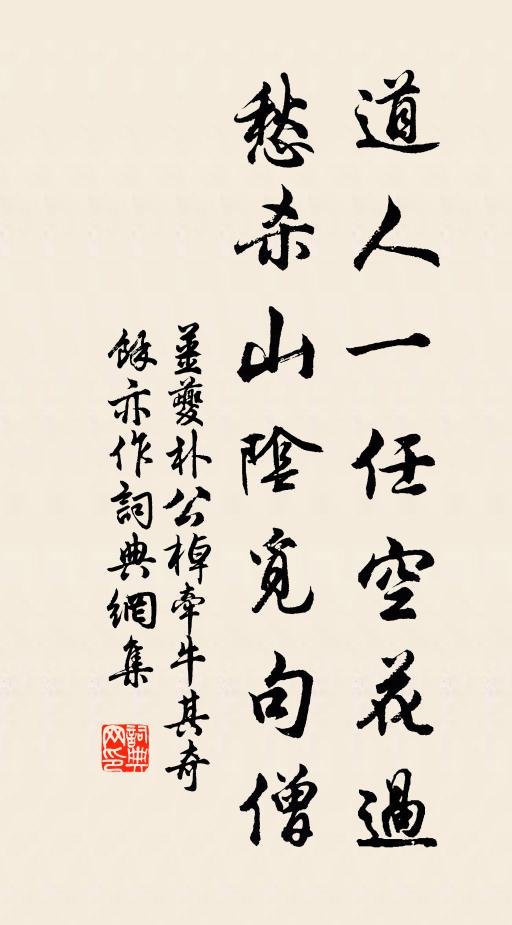 道人一任空花過
愁杀山陰覓句僧
姜夔朴公悼牽牛甚奇
餘亦作詞典網集
詞典网印